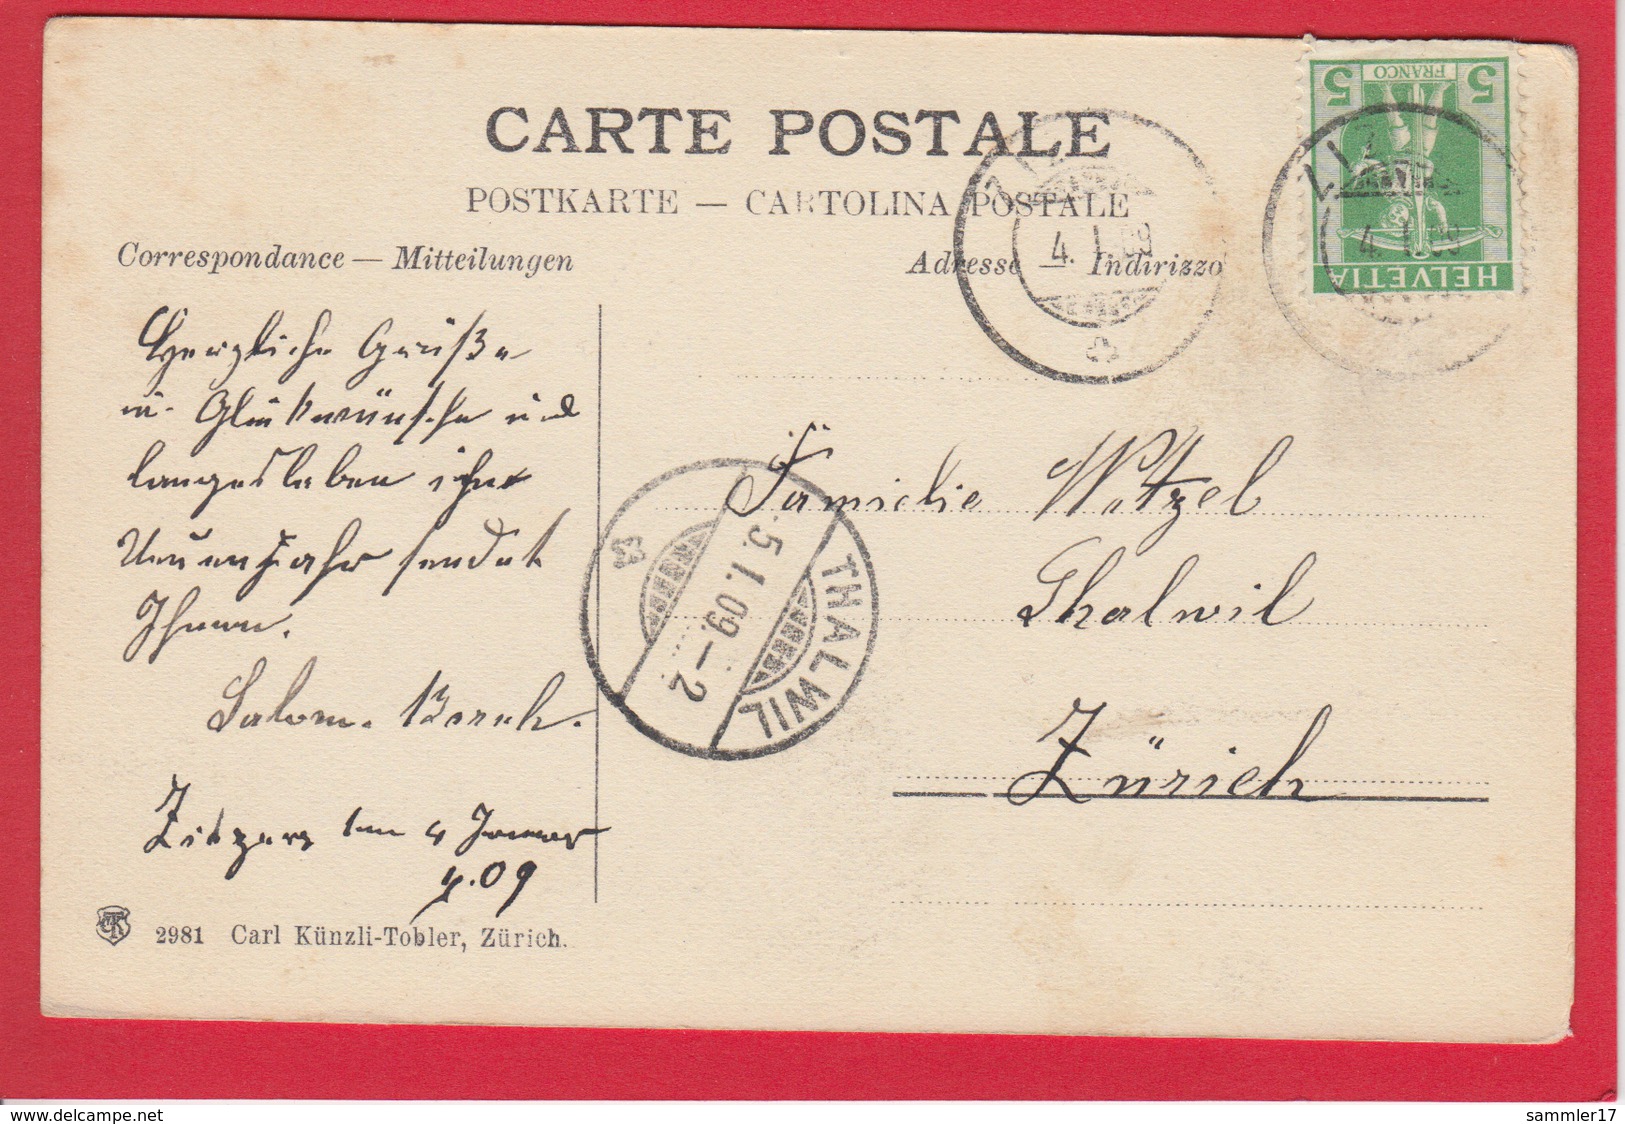 CARTE POSTALE
POSTKARTE — CARTOLINA POSTALE
Correspondance — Mitteilungen
Adresse — Indirizzo
FRANCO
5 5
HELVETIA
4. I. 09
4. I. 09
Herzliche Grüße
u. Glückwünsche und
langes Leben ihr
Neuen Jahr sendet
Ihnen.
Salom.
Zitzers den 4 Januar
09
Familie Wetzel
Thalwil
Zürich
THALWIL
5. I. 09. — 2
2981 Carl Künzli-Tobler, Zürich.
www.delcampe.net
sammler17